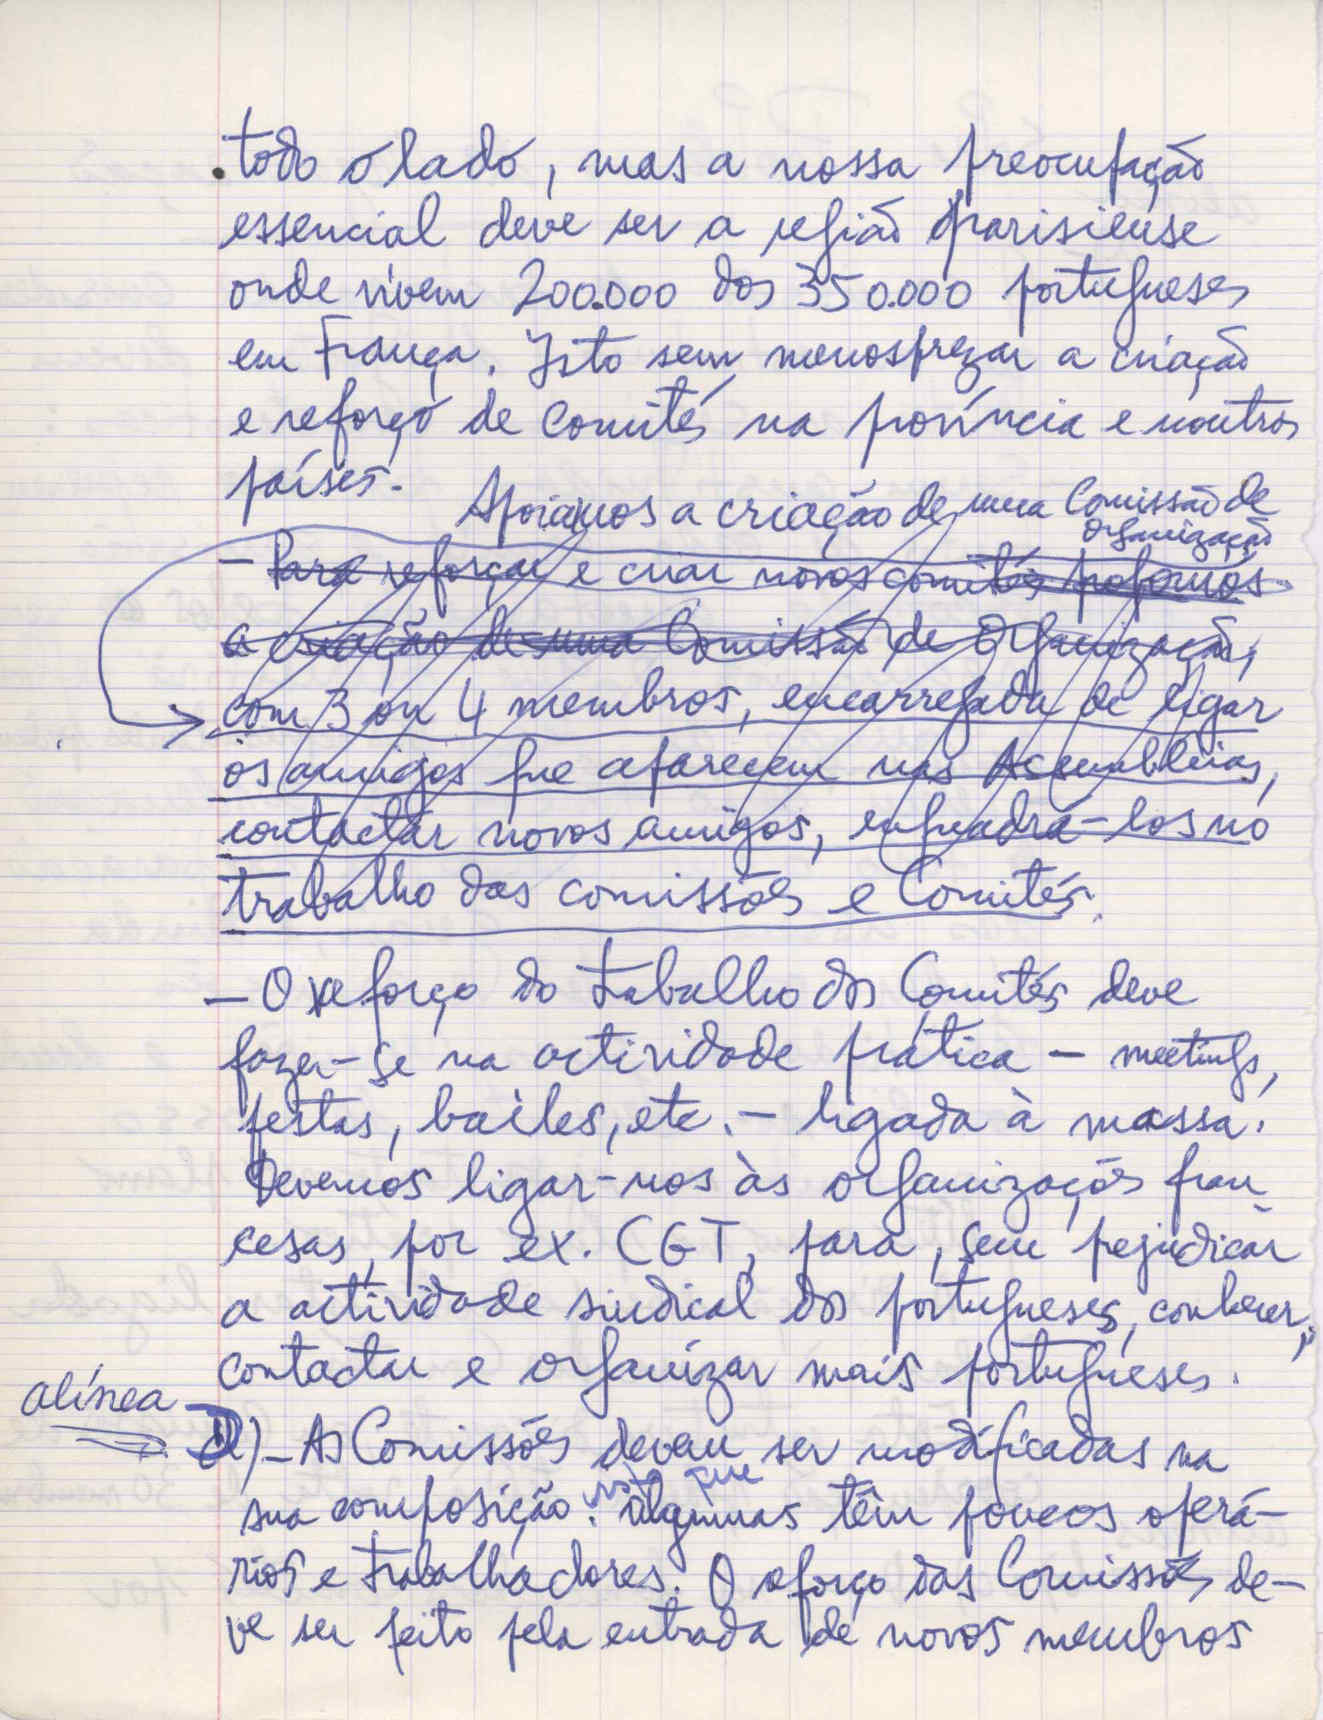 todo o lado, mas a nossa preocupação
essencial deve ser a região parisiense
onde vivem 200.000 dos 350.000 portugueses
em França. Isto sem menosprezar a criação
e reforço de Comités na província e noutros
países.
Apoiamos a criação de uma Comissão de
Organização
- Para reforçar e criar novos comités propomos
a criação de uma Comissão de Organização,
com 3 ou 4 membros, encarregada de ligar
os amigos que aparecem nas Assembleias,
contactar novos amigos, enquadrá-los no
trabalho das comissões e Comités.
- O reforço do trabalho dos Comités deve
fazer-se na actividade prática - meetings,
festas, bailes, etc. - ligada à massa.
Devemos ligar-nos às organizações fran
cesas, por ex. CGT, para, sem prejudicar
a actividade sindical dos portugueses, conhecer,
contactar e organizar mais portugueses.
alínea
D) - As Comissões devem ser modificadas na
sua composição. visto que algumas têm poucos operá-
rios e trabalhadores. O reforço das Comissões de-
ve ser feito pela entrada de novos membros